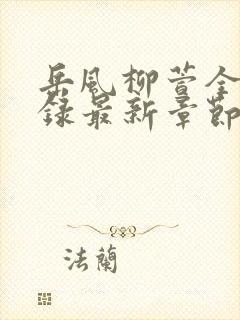 岳風柳萱全
錄最新章節
法蘭